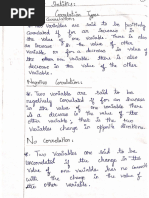 Statistics:
Correlation Types
Positive Correlation:
Two variables are said to be positively
correlated if for an increase in the
value of one variable there is also
an increase in the value of other
variable or for a decrease in value of
one variable there is also
decrease in the value of the other
variable.
Negative Correlation:
Two variables are said to be
negatively correlated if for an increase
in the value of one variable there
is a decrease in the value of the
other variable, that is the two
variables change in opposite directions.
No Correlation:
Two variables are said to be
uncorrelated if the change in the
value of one variable has no connection
with the change in the value of
the other variable.